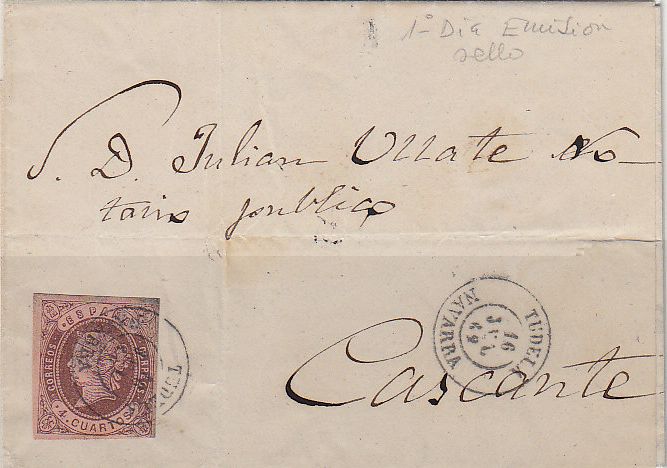 1º Dia Emision
sello
S. D. Julian Ullate No-
tario publico
Cascante
TUDELA
16
JUL
62
NAVARRA
ESPAÑA
CORREOS
4 CUARTOS
TUD